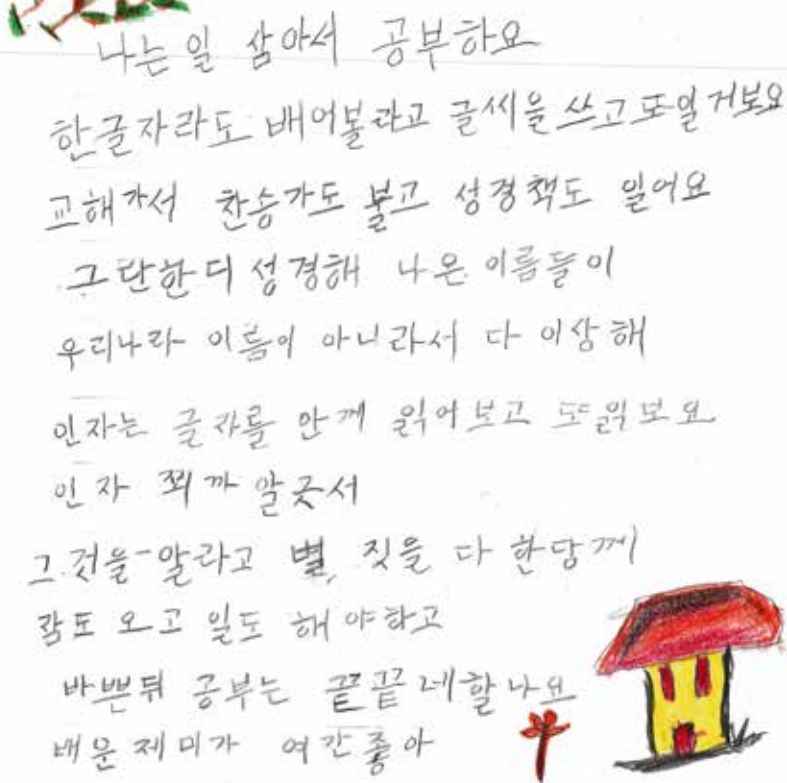 나는일 삼아서 공부하요
한글자라도 배어볼라고 글씨을 쓰고또일거보요
교해가서 찬송가도 불고 성경책도 일어요
그란한디 성경해 나온 이름들이
우리나라 이름이 아니라서 다 이상해
인자는 글자를 안께 읽어보고 또읽보요
인자 쬐까 알긋서
그것을 알라고 별 짓을 다 한당께
잠도 오고 일도 해야하고
바쁜뒤 공부는 끝끝네할나요
배운제미가 여간좋아